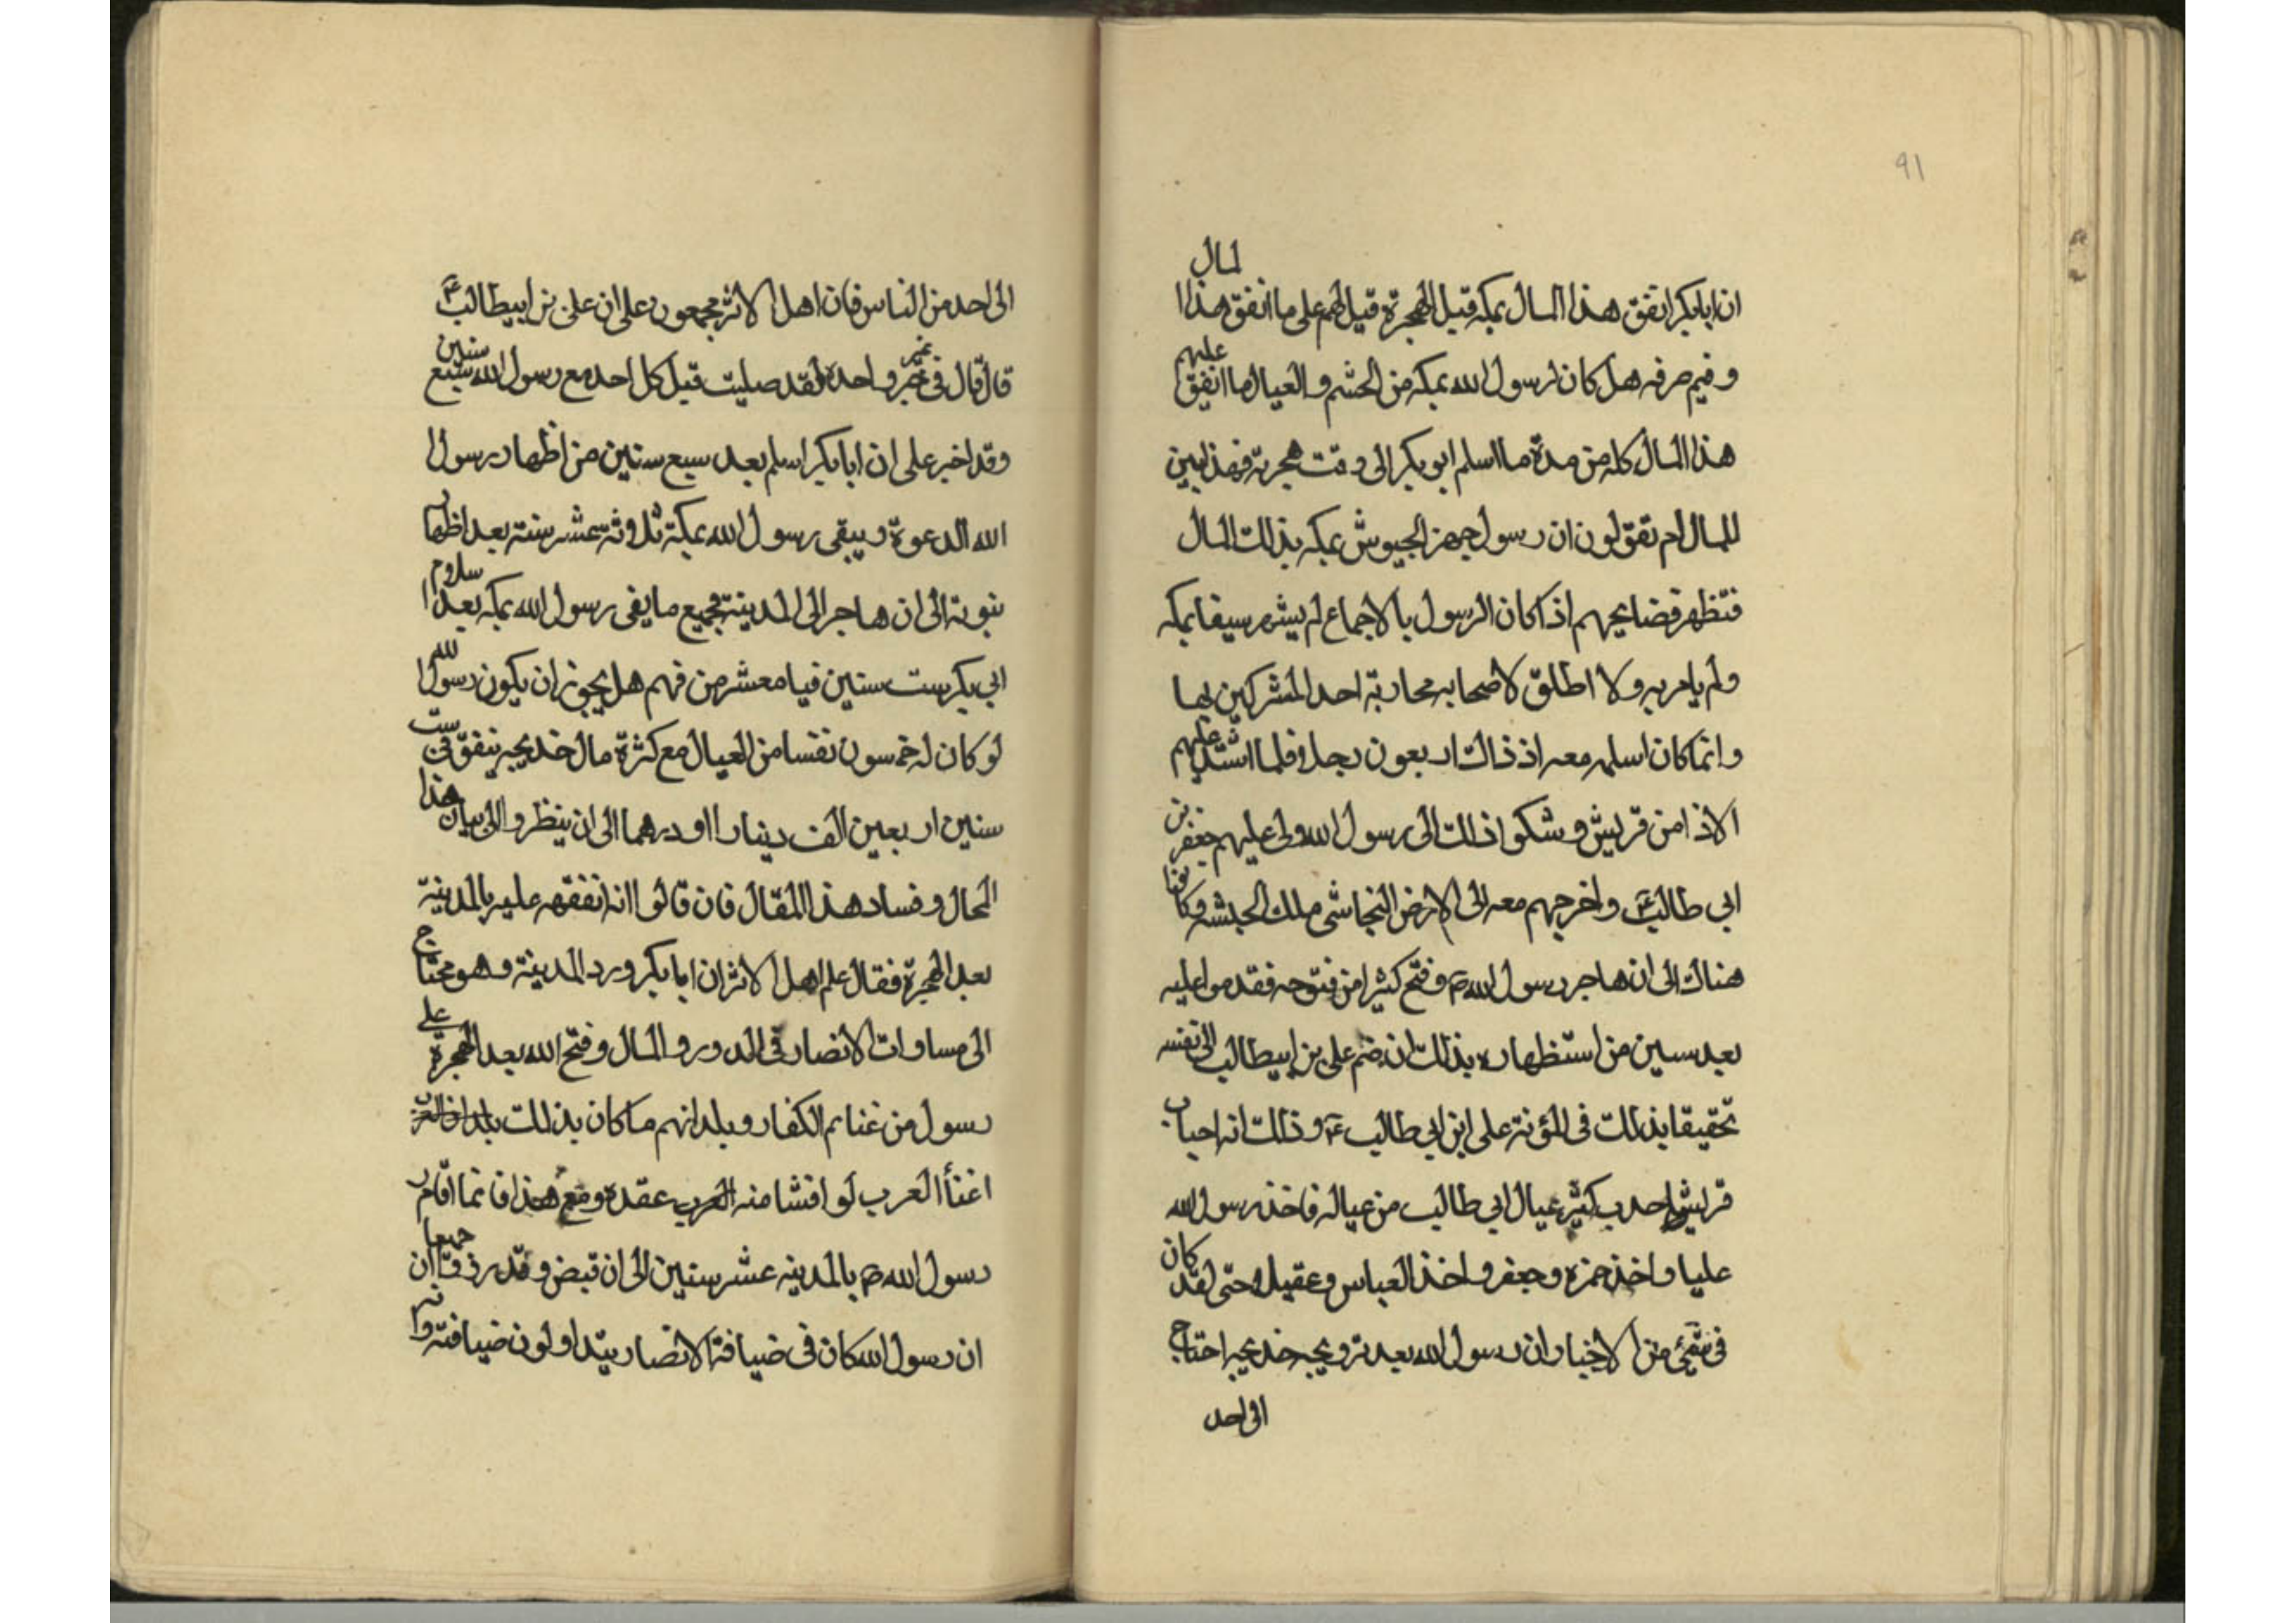 91
ان ابابكر انفق هذا المال بمكة قبل الهجرة قيل لهم على ما انفق هذا المال
وفيم صرفه هل كان لرسول الله بمكه من الحشم و العيال ما انفق عليهم
هذا المال كله من مدة ما اسلم ابو بكر الى وقت هجرته فهذا بين
للمال ام تقولون ان رسول جهز الجيوش بمكه بذلك المال
فتظهر فضايحهم اذ كان الرسول بالاجماع لم يشهر سيفا بمكه
ولم يامر به ولا اطلق لاصحابه محاربة احد المشركين بها
وانما كان اسلم معه اذ ذاك اربعون رجلا فلما اشتد عليهم
الاذا من قريش و شكوا ذلك الى رسول الله ولى عليهم جعفر بن
ابي طالب ع واخرجهم معه الى الارض النجاشى ملك الحبشه وكانوا
هناك الى ان هاجر رسول الله ص وفتح كثيرا من فتوحه فقدموا عليه
بعد سنين من استظهاره بذلك ان ضم على بن ابيطالب الى نفسه
تحقيقا بذلك فى المؤنة على ابن ابي طالب ع وذلك انه اجاب
قريش احدب كثير عيال ابي طالب من عياله فاخذ رسول الله
عليا واخذ حمزه وجعفر واخذ العباس وعقيلا حتى لقد كان
فى شئ من الاخبار ان رسول الله بعد تزويجه خديجه احتاج
الى احد
الى احد من الناس فان اهل الاثر مجمعون على ان على بن ابيطالب ع
قال قال فى خبر واحد لقد صليت قبل كل احد مع رسول الله سبع سنين
وقد اخبر على ان ابابكر اسلم بعد سبع سنين من اظهار رسول
الله الدعوة ويبقى رسول الله بمكة ثلاثة عشر سنة بعد اظهار
نبوته الى ان هاجر الى المدينة فجميع ما بقى رسول الله بمكه بعد اسلام
ابي بكر ست سنين فيا معشر من فهم هل يجوز ان يكون رسول الله
لو كان له خمسون نفسا من العيال مع كثرة مال خديجه ينفق فى ست
سنين اربعين الف دينارا او درهما الى ان ينظروا الى بيان هذا
المحال و فساد هذا المقال فان قالوا انه انفقه عليه بالمدينة
بعد الهجرة فقال علم اهل الاثر ان ابابكر ورد المدينة وهو محتاج
الى مساوات الانصار فى الدور و المال وفتح الله بعد الهجرة على
رسول من غنايم الكفار وبلدانهم ما كان بذلك
اغنأ العرب لو افشا منه العرب عقدة ومع هذا فانما اقام
رسول الله ص بالمدينه عشر سنين الى ان قبض وقد رزقا جميعا ان
ان رسول الله كان فى ضيافة الانصار يتداولون ضيافته وانه